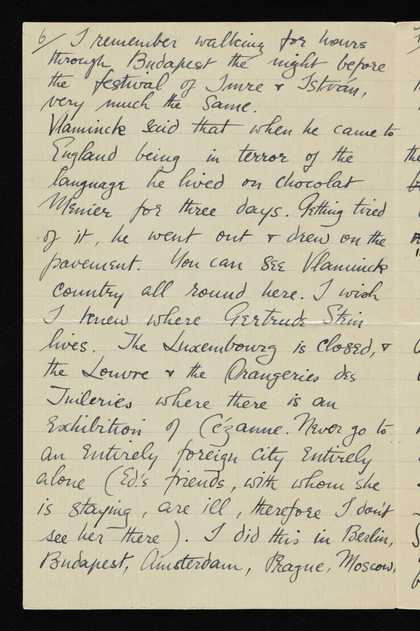 6/ I remember walking for hours
through Budapest the night before
the festival of Imre & István,
very much the same.
Vlaminck said that when he came to
England being in terror of the
language he lived on chocolat
Menier for three days. Getting tired
of it, he went out & drew on the
pavement. You can see Vlaminck
country all round here. I wish
I knew where Gertrude Stein
lives. The Luxembourg is closed, &
the Louvre & the Orangeries des
Tuileries where there is an
Exhibition of Cézanne. Never go to
an entirely foreign city entirely
alone (Ed's friends, with whom she
is staying, are ill, therefore I don't
see her there). I did this in Berlin,
Budapest, Amsterdam, Prague, Moscow,